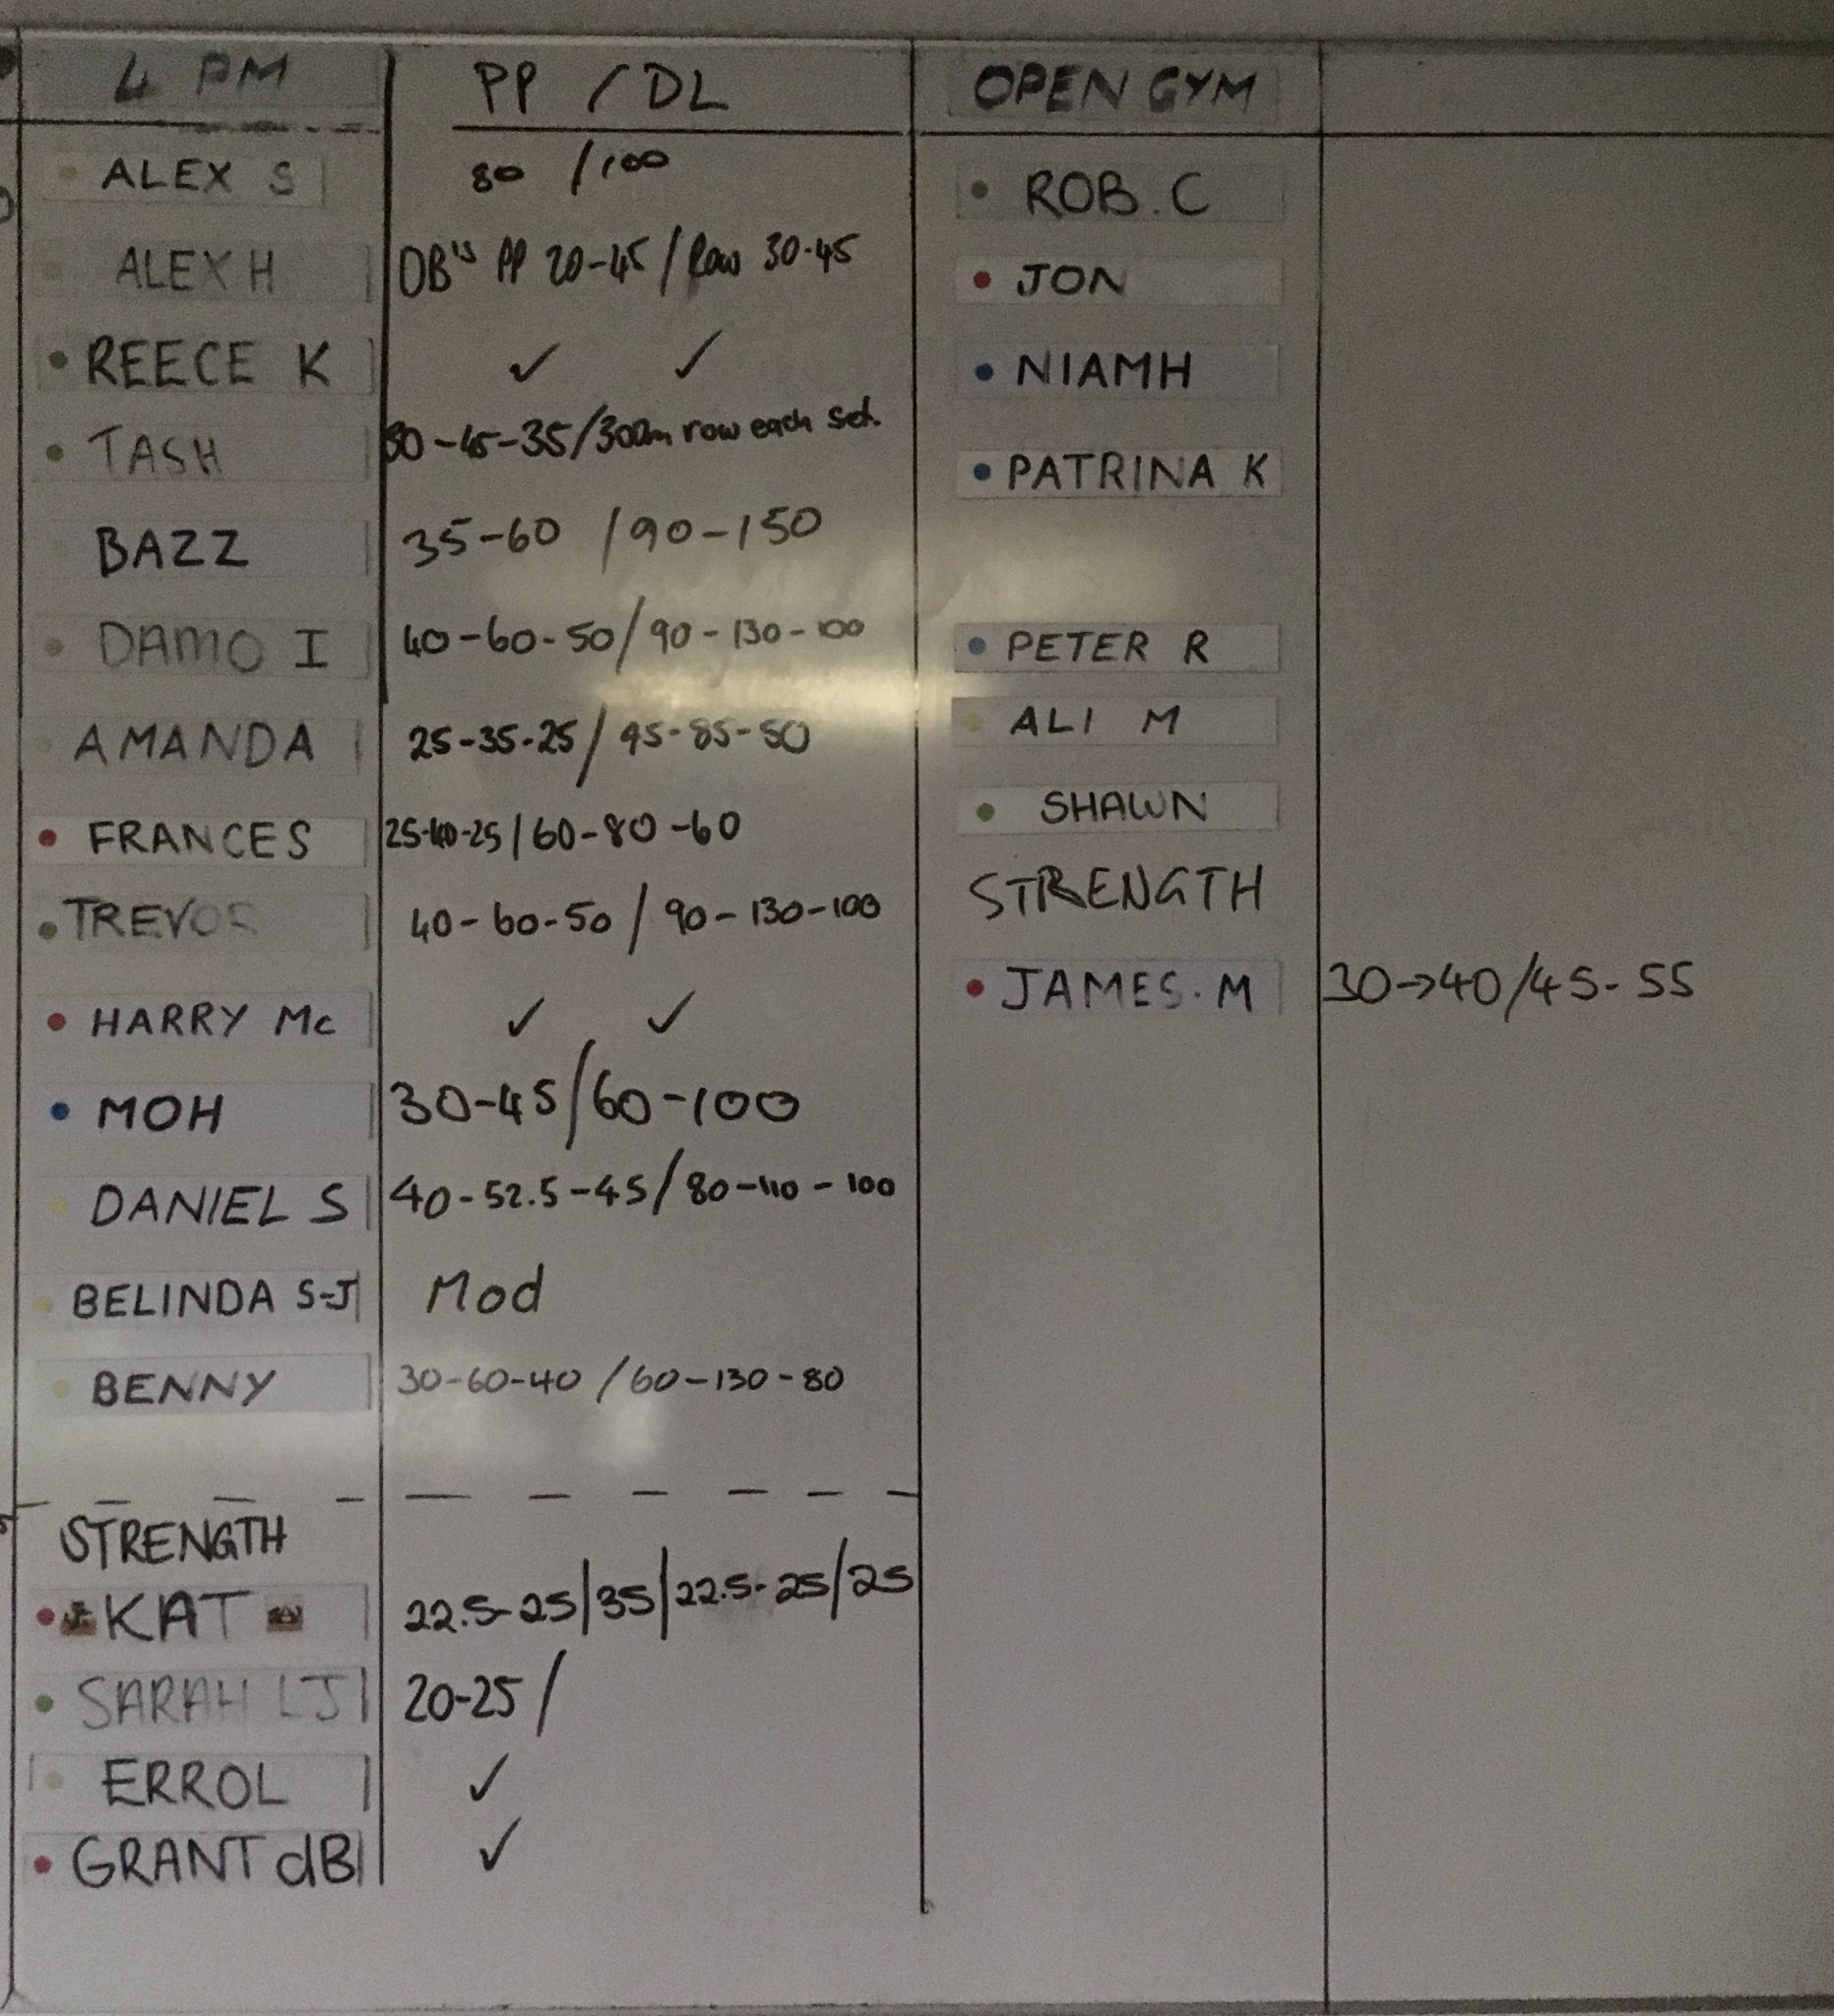 4 PM PP / DL
ALEX S 80 / 100
ALEX H DB's PP 20-45 / Row 30-45
REECE K ✓ ✓
TASH 30-45-35/300m row each set.
BAZZ 35-60 / 90-150
DAMO I 40-60-50 / 90-130-100
AMANDA 25-35-25 / 45-85-50
FRANCES 25-40-25 / 60-80-60
TREVOR 40-60-50 / 90-130-100
HARRY Mc ✓ ✓
MOH 30-45 / 60-100
DANIEL S 40-52.5-45 / 80-110-100
BELINDA S-J Mod
BENNY 30-60-40 / 60-130-80
STRENGTH
KAT 22.5-25 / 35 / 22.5-25 / 25
SARAH LJ 20-25 /
ERROL ✓
GRANT dB ✓
OPEN GYM
ROB.C
JON
NIAMH
PATRINA K
PETER R
ALI M
SHAWN
STRENGTH
JAMES.M 30→40/45-55